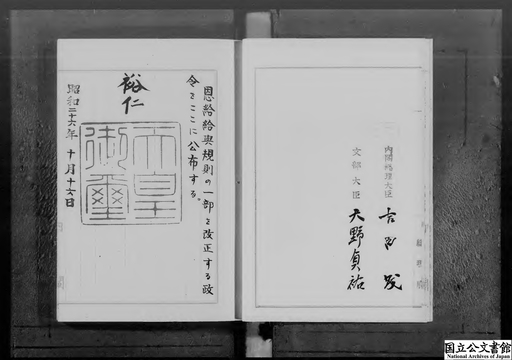 内閣総理大臣 吉田茂
文部大臣 天野貞祐
恩給給與規則の一部を改正する政
令をここに公布する。
裕仁
天皇
御璽
昭和二十六年十月十六日
国立公文書館
National Archives of Japan